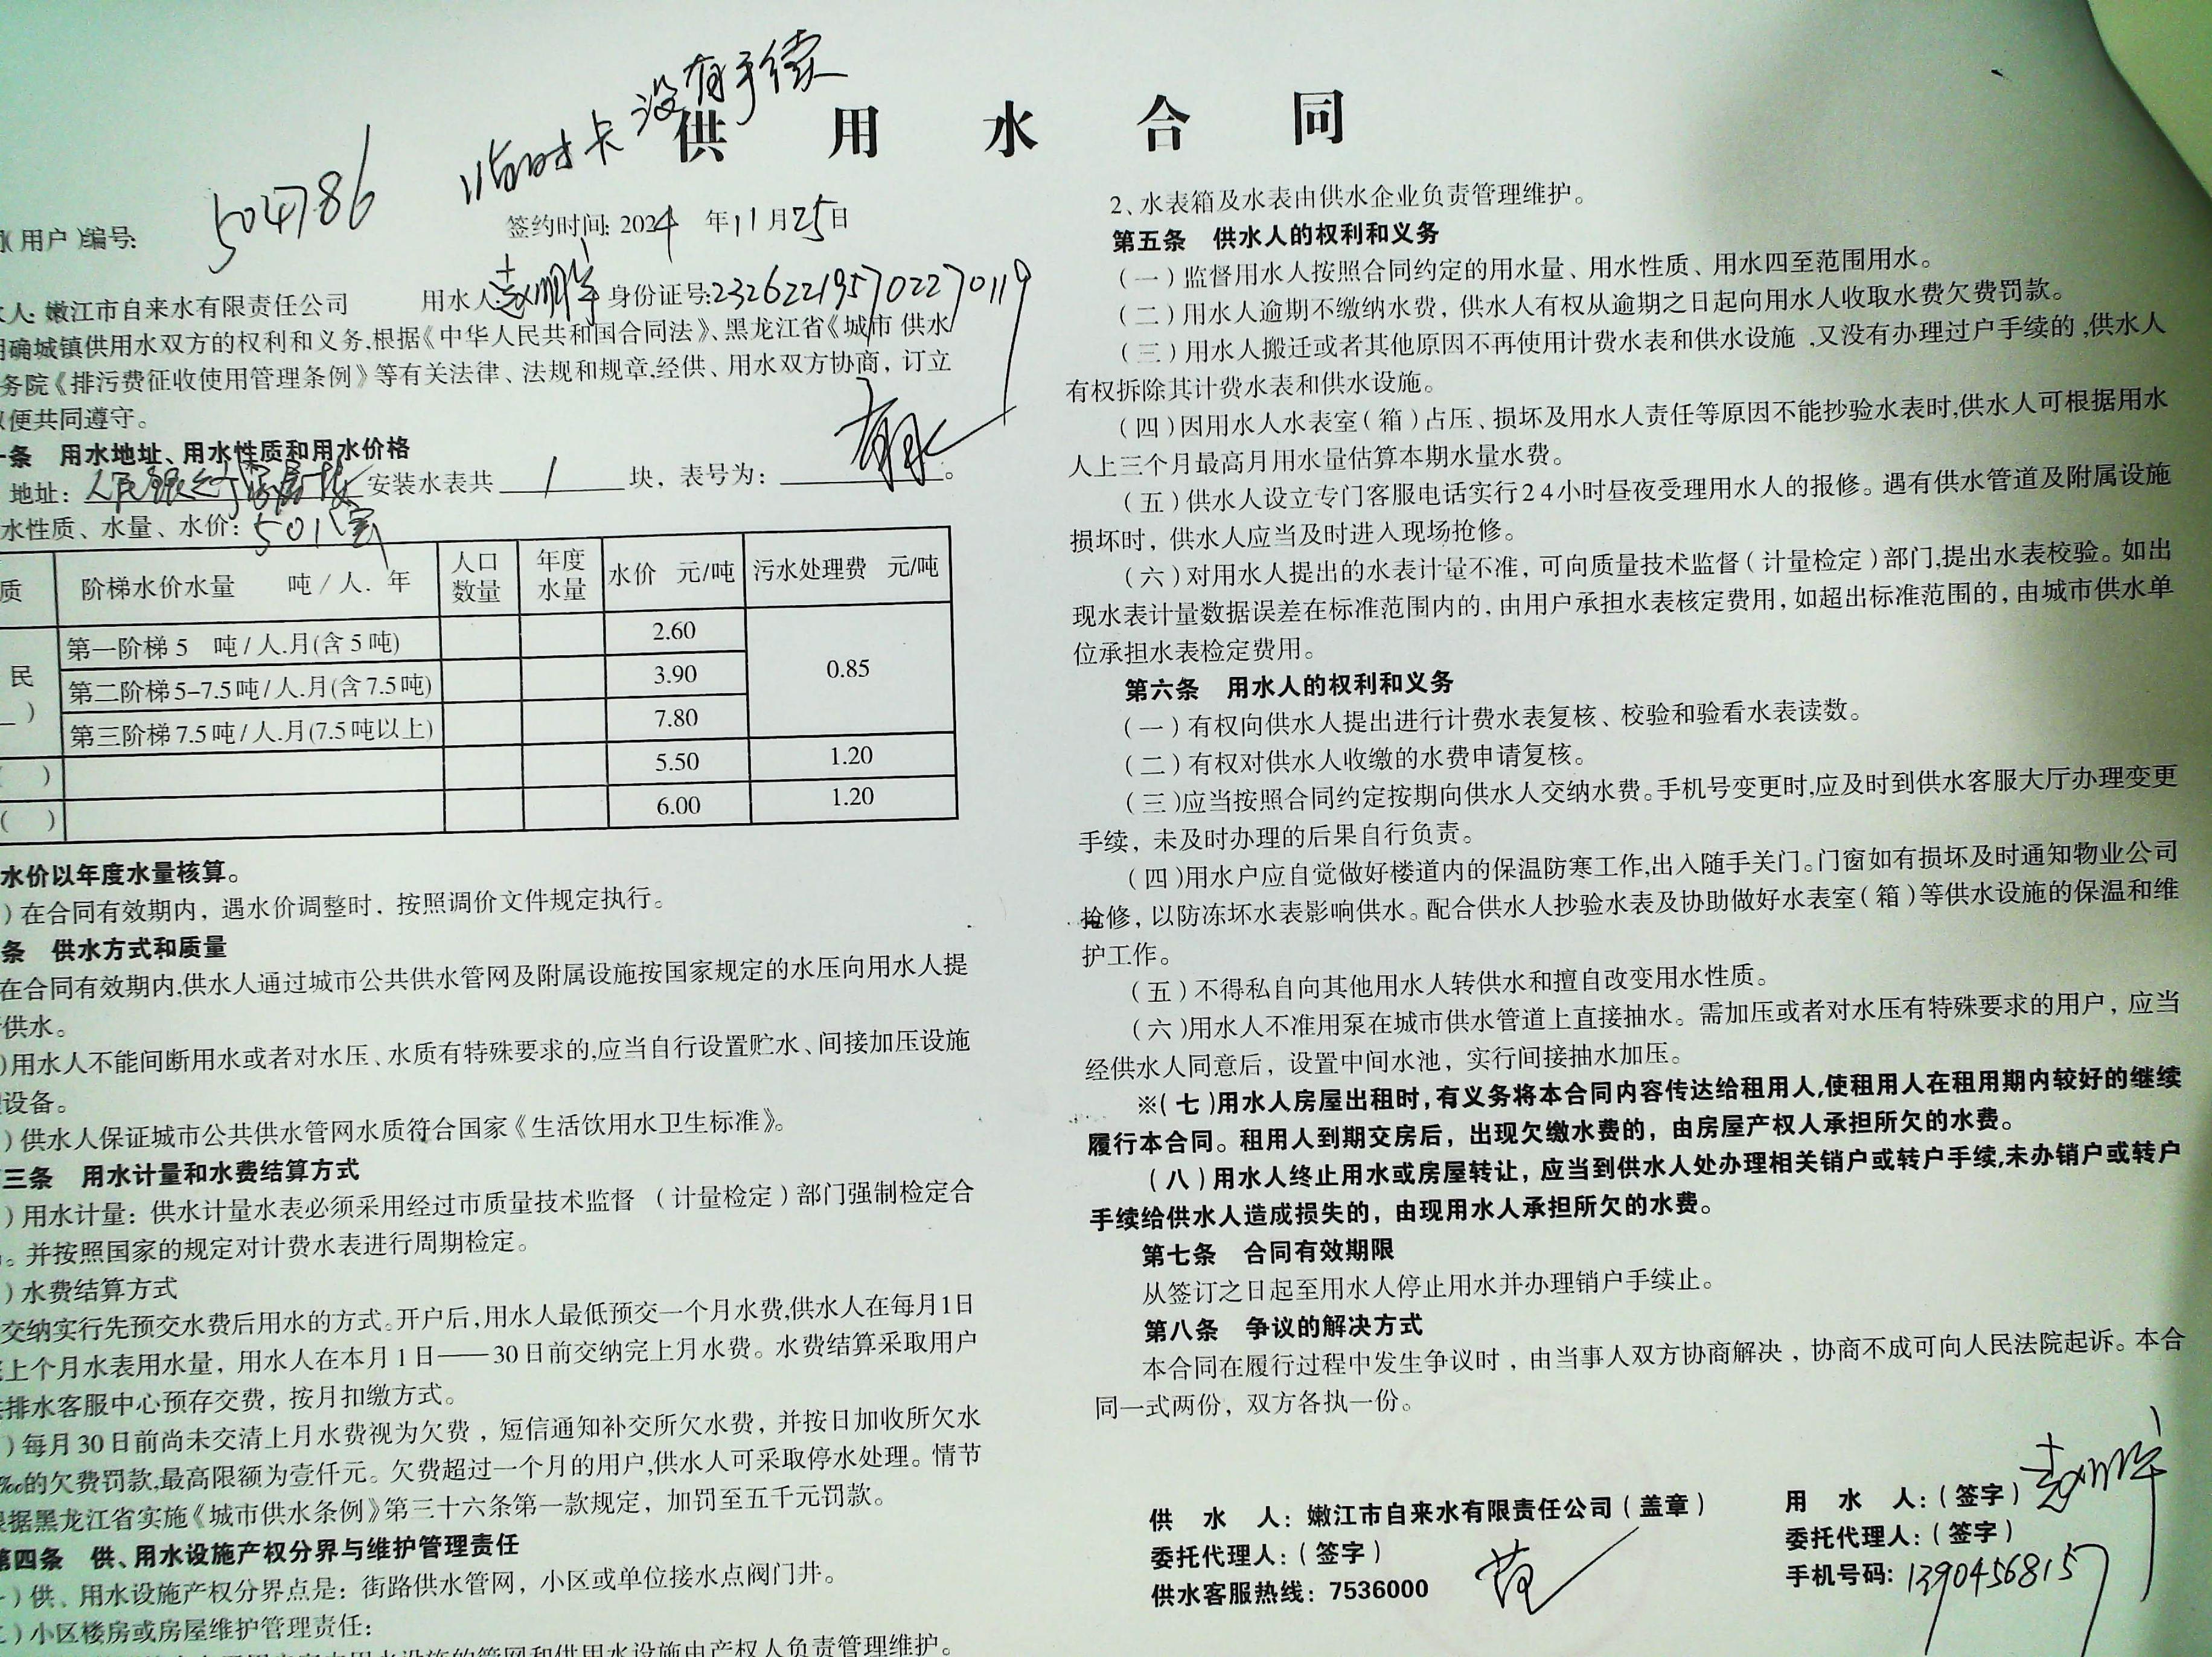 临时卡 没有手续
供用水合同
504786
(用户)编号:
签约时间: 2024 年11月25日
人: 嫩江市自来水有限责任公司 用水人: 身份证号:232622195702270119
确城镇供用水双方的权利和义务,根据《中华人民共和国合同法》、黑龙江省《城市 供水
务院《排污费征收使用管理条例》等有关法律、法规和规章,经供、用水双方协商，订立
便共同遵守。
条 用水地址、用水性质和用水价格
地址：人民银行 楼 安装水表共 1 块，表号为： 。
水性质、水量、水价：501室
质 阶梯水价水量 吨/人.年 人口数量 年度水量 水价 元/吨 污水处理费 元/吨
民 第一阶梯 5 吨/人.月(含5吨) 2.60 0.85
第二阶梯 5-7.5吨/人.月(含7.5吨) 3.90
第三阶梯 7.5吨/人.月(7.5吨以上) 7.80
( ) 5.50 1.20
( ) 6.00 1.20
水价以年度水量核算。
)在合同有效期内，遇水价调整时，按照调价文件规定执行。
条 供水方式和质量
在合同有效期内,供水人通过城市公共供水管网及附属设施按国家规定的水压向用水人提
供水。
)用水人不能间断用水或者对水压、水质有特殊要求的,应当自行设置贮水、间接加压设施
设备。
)供水人保证城市公共供水管网水质符合国家《生活饮用水卫生标准》。
三条 用水计量和水费结算方式
)用水计量：供水计量水表必须采用经过市质量技术监督（计量检定）部门强制检定合
。并按照国家的规定对计费水表进行周期检定。
)水费结算方式
交纳实行先预交水费后用水的方式。开户后,用水人最低预交一个月水费,供水人在每月1日
上个月水表用水量，用水人在本月1日——30日前交纳完上月水费。水费结算采取用户
排水客服中心预存交费，按月扣缴方式。
)每月30日前尚未交清上月水费视为欠费，短信通知补交所欠水费，并按日加收所欠水
‰的欠费罚款,最高限额为壹仟元。欠费超过一个月的用户,供水人可采取停水处理。情节
据黑龙江省实施《城市供水条例》第三十六条第一款规定，加罚至五千元罚款。
第四条 供、用水设施产权分界与维护管理责任
)供、用水设施产权分界点是：街路供水管网，小区或单位接水点阀门井。
)小区楼房或房屋维护管理责任：
水设施的管网和供用水设施由产权人负责管理维护。
2、水表箱及水表由供水企业负责管理维护。
第五条 供水人的权利和义务
（一）监督用水人按照合同约定的用水量、用水性质、用水四至范围用水。
（二）用水人逾期不缴纳水费，供水人有权从逾期之日起向用水人收取水费欠费罚款。
（三）用水人搬迁或者其他原因不再使用计费水表和供水设施,又没有办理过户手续的,供水人
有权拆除其计费水表和供水设施。
（四）因用水人水表室（箱）占压、损坏及用水人责任等原因不能抄验水表时,供水人可根据用水
人上三个月最高月用水量估算本期水量水费。
（五）供水人设立专门客服电话实行24小时昼夜受理用水人的报修。遇有供水管道及附属设施
损坏时，供水人应当及时进入现场抢修。
（六）对用水人提出的水表计量不准，可向质量技术监督（计量检定）部门,提出水表校验。如出
现水表计量数据误差在标准范围内的，由用户承担水表核定费用，如超出标准范围的，由城市供水单
位承担水表检定费用。
第六条 用水人的权利和义务
（一）有权向供水人提出进行计费水表复核、校验和验看水表读数。
（二）有权对供水人收缴的水费申请复核。
（三）应当按照合同约定按期向供水人交纳水费。手机号变更时,应及时到供水客服大厅办理变更
手续，未及时办理的后果自行负责。
（四）用水户应自觉做好楼道内的保温防寒工作,出入随手关门。门窗如有损坏及时通知物业公司
抢修，以防冻坏水表影响供水。配合供水人抄验水表及协助做好水表室（箱）等供水设施的保温和维
护工作。
（五）不得私自向其他用水人转供水和擅自改变用水性质。
（六）用水人不准用泵在城市供水管道上直接抽水。需加压或者对水压有特殊要求的用户，应当
经供水人同意后，设置中间水池，实行间接抽水加压。
※（七）用水人房屋出租时,有义务将本合同内容传达给租用人,使租用人在租用期内较好的继续
履行本合同。租用人到期交房后，出现欠缴水费的，由房屋产权人承担所欠的水费。
（八）用水人终止用水或房屋转让，应当到供水人处办理相关销户或转户手续,未办销户或转户
手续给供水人造成损失的，由现用水人承担所欠的水费。
第七条 合同有效期限
从签订之日起至用水人停止用水并办理销户手续止。
第八条 争议的解决方式
本合同在履行过程中发生争议时，由当事人双方协商解决，协商不成可向人民法院起诉。本合
同一式两份，双方各执一份。
供 水 人：嫩江市自来水有限责任公司（盖章）
委托代理人：（签字）
供水客服热线：7536000
用 水 人：（签字）
委托代理人：（签字）
手机号码：13904568157